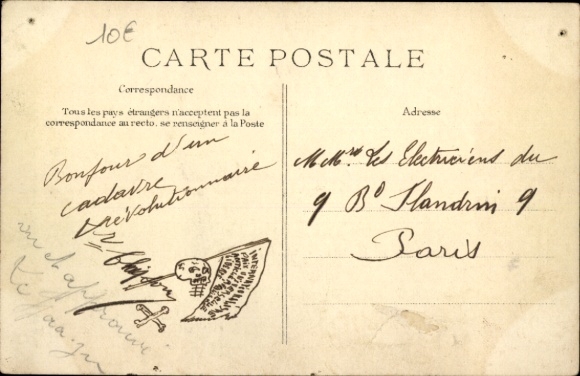 10€
CARTE POSTALE
Correspondance
Tous les pays étrangers n'acceptent pas la
correspondance au recto. se renseigner à la Poste
Adresse
Bonjour d'un
cadavre
révolutionnaire
vu et approuvé
M Mrs Les Electriciens du
9 Bd Flandrin 9
Paris